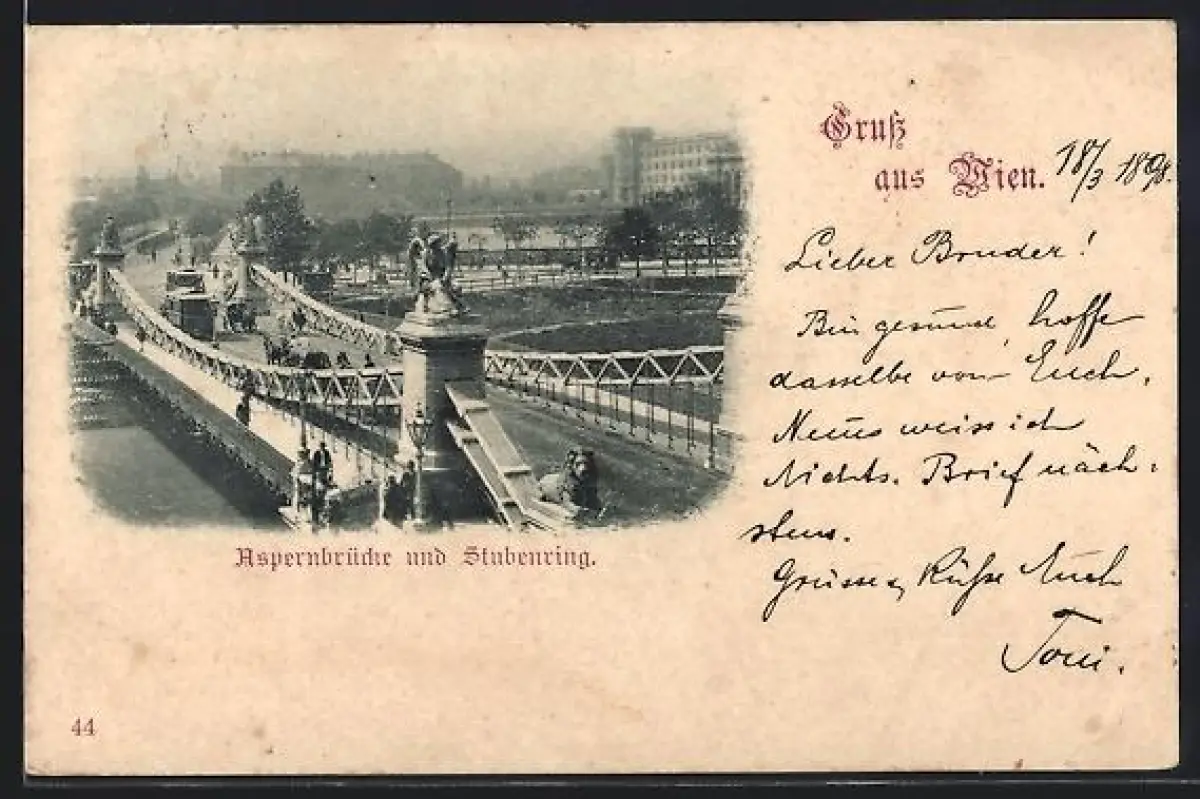 Gruß
aus Wien.
18/3 1898.
Lieber Bruder!
Bin gesund, hoffe
dasselbe von Euch.
Neues weiss ich
Nichts. Brief näch-
stens.
Grüsse & Küsse Euch
Toni.
Aspernbrücke und Stubenring.
44